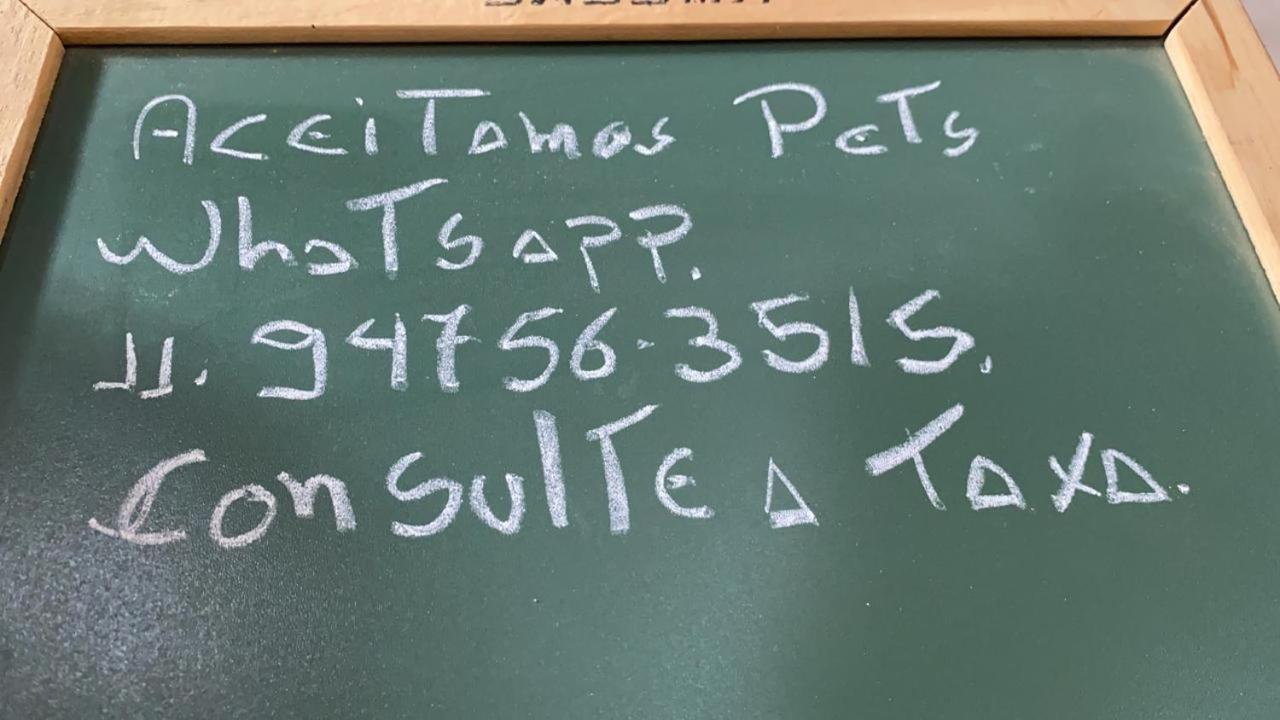 Aceitamos Pets
WhatsApp.
11. 94756-3515.
Consulte a Taxa.